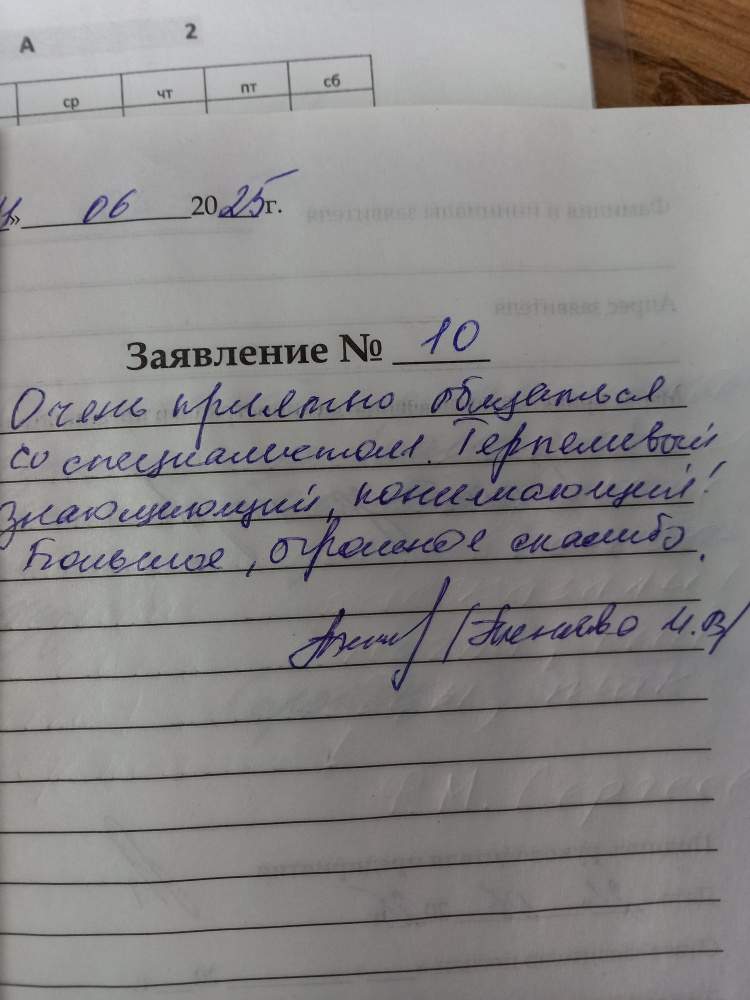 А 2
ср чт пт сб
» 06 2025г.
Заявление № 10
Очень приятно общаться
со специалистом. Терпеливый
знающиющий, понимающий!
Большое, огромное спасибо.
И.В.